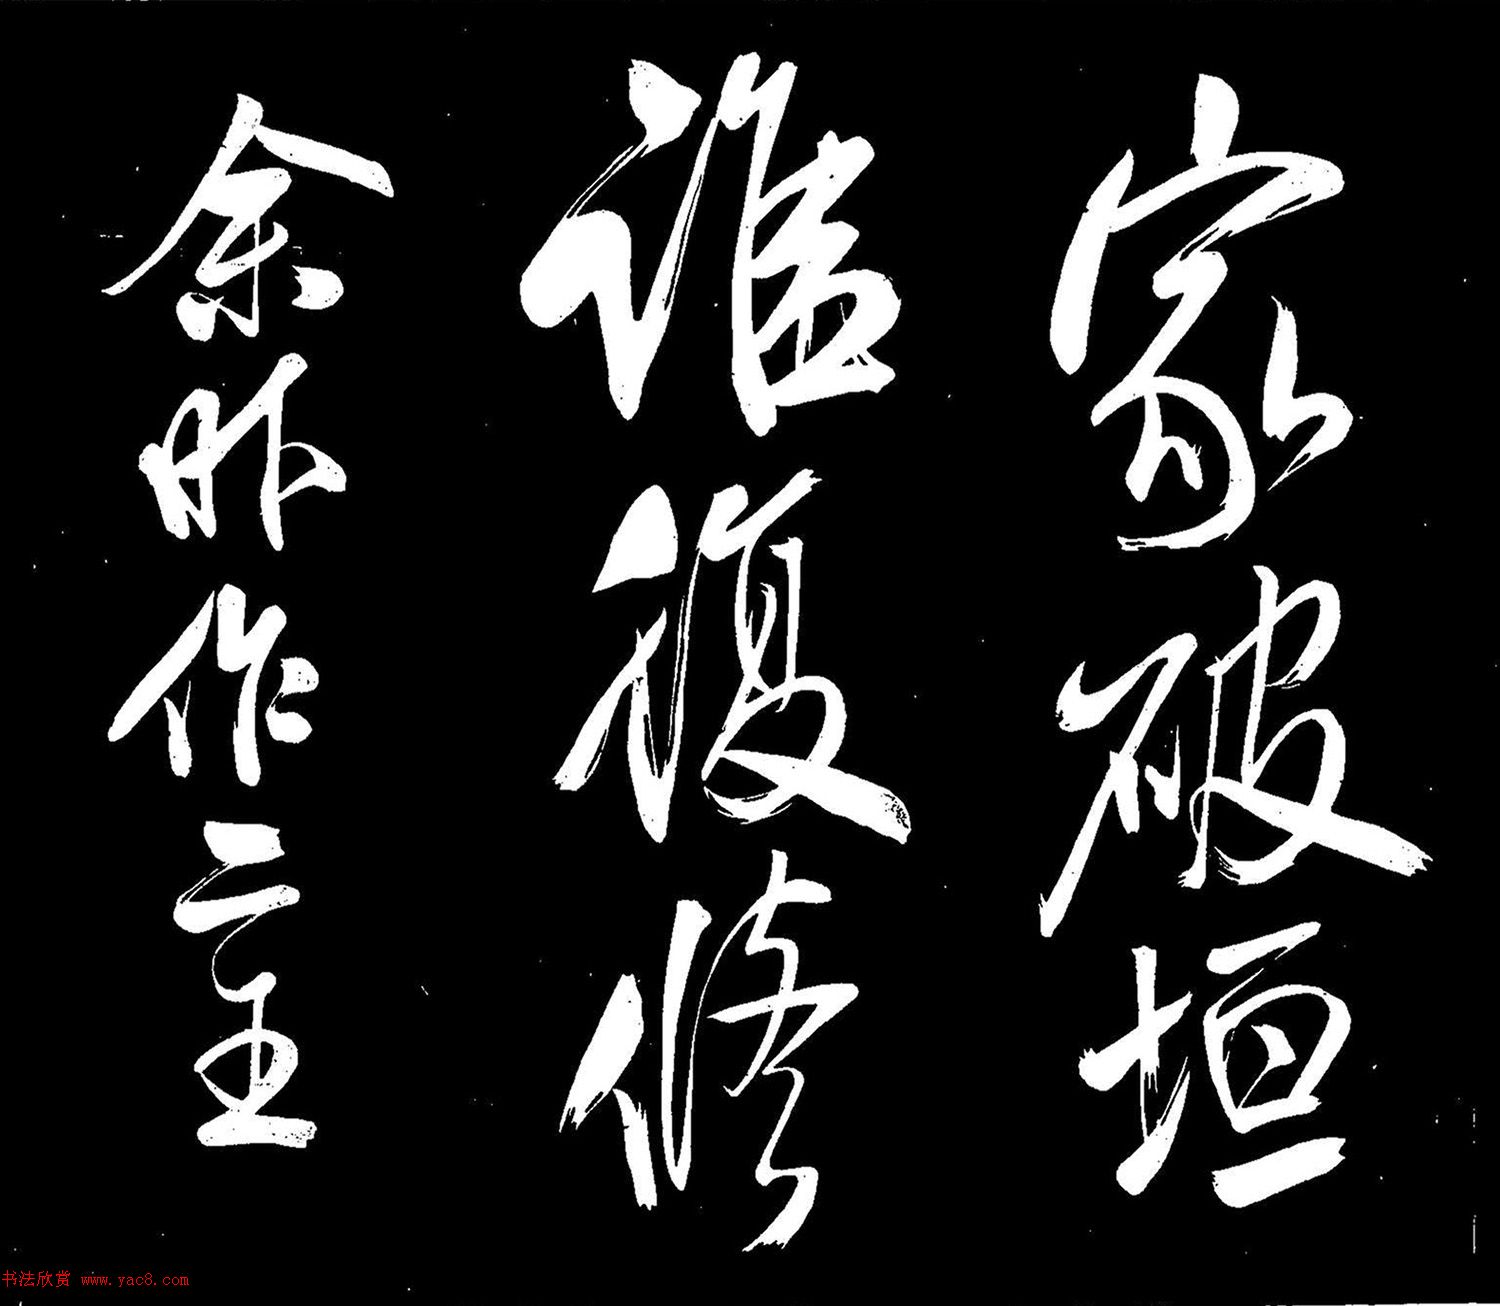 家破垣
誰復修
余昨作主
书法欣赏 www.yac8.com